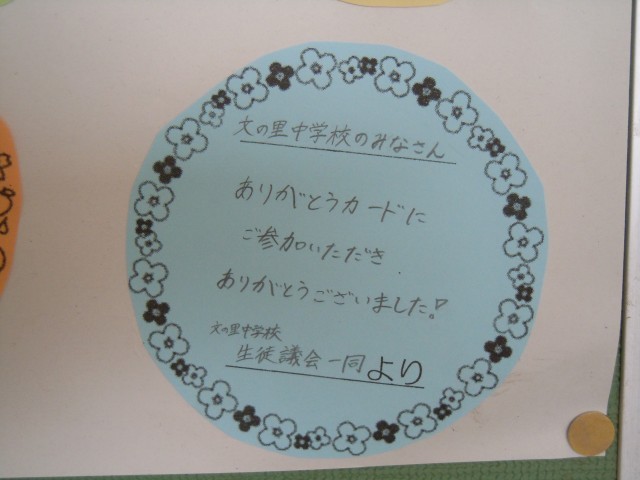 文の里中学校のみなさん
ありがとうカードに
ご参加いただき
ありがとうございました!
文の里中学校
生徒議会一同より